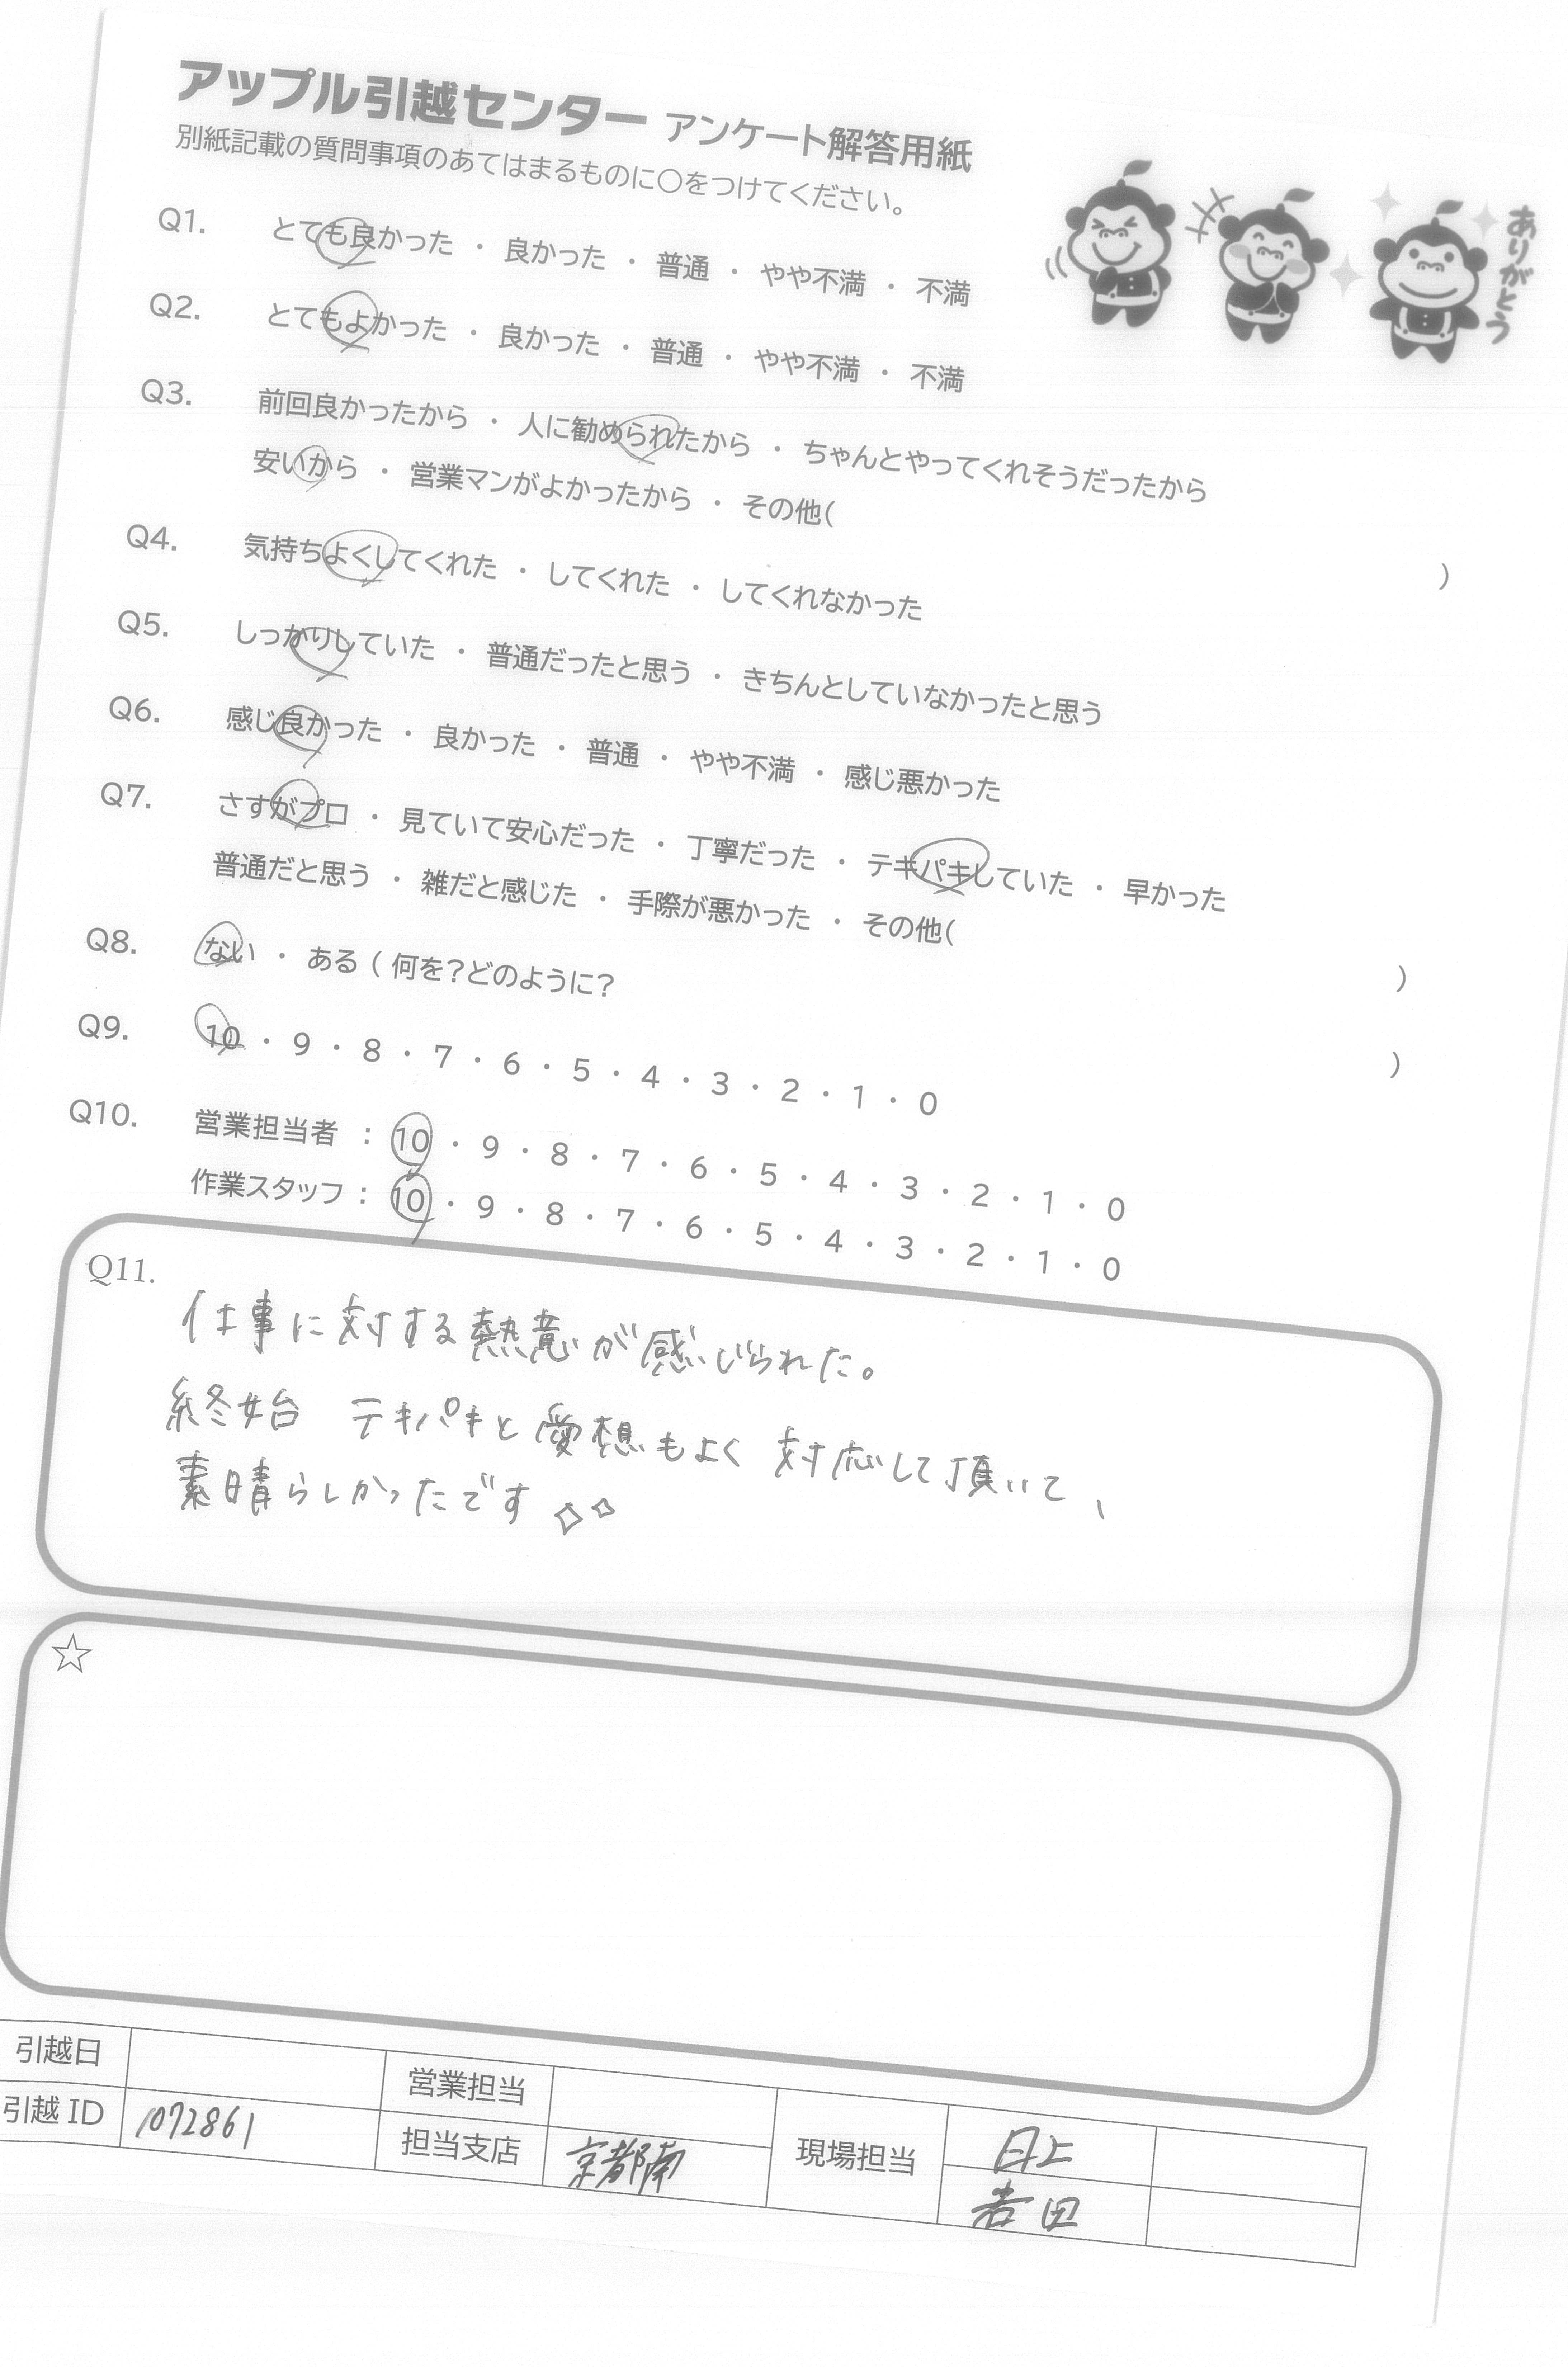 アップル引越センター アンケート解答用紙
別紙記載の質問事項のあてはまるものに〇をつけてください。
ありがとう
Q1. とても良かった ・ 良かった ・ 普通 ・ やや不満 ・ 不満
Q2. とてもよかった ・ 良かった ・ 普通 ・ やや不満 ・ 不満
Q3. 前回良かったから ・ 人に勧められたから ・ ちゃんとやってくれそうだったから
安いから ・ 営業マンがよかったから ・ その他( )
Q4. 気持ちよくしてくれた ・ してくれた ・ してくれなかった
Q5. しっかりしていた ・ 普通だったと思う ・ きちんとしていなかったと思う
Q6. 感じ良かった ・ 良かった ・ 普通 ・ やや不満 ・ 感じ悪かった
Q7. さすがプロ ・ 見ていて安心だった ・ 丁寧だった ・ テキパキしていた ・ 早かった
普通だと思う ・ 雑だと感じた ・ 手際が悪かった ・ その他( )
Q8. ない ・ ある ( 何を?どのように? )
Q9. 10 ・ 9 ・ 8 ・ 7 ・ 6 ・ 5 ・ 4 ・ 3 ・ 2 ・ 1 ・ 0
Q10. 営業担当者 : 10 ・ 9 ・ 8 ・ 7 ・ 6 ・ 5 ・ 4 ・ 3 ・ 2 ・ 1 ・ 0
作業スタッフ : 10 ・ 9 ・ 8 ・ 7 ・ 6 ・ 5 ・ 4 ・ 3 ・ 2 ・ 1 ・ 0
Q11.
仕事に対する熱意が感じられた。
終始 テキパキと愛想もよく 対応して頂いて、
素晴らしかったです
☆
引越日 営業担当 現場担当 日上
引越 ID 1072861 担当支店 京都南 吉田